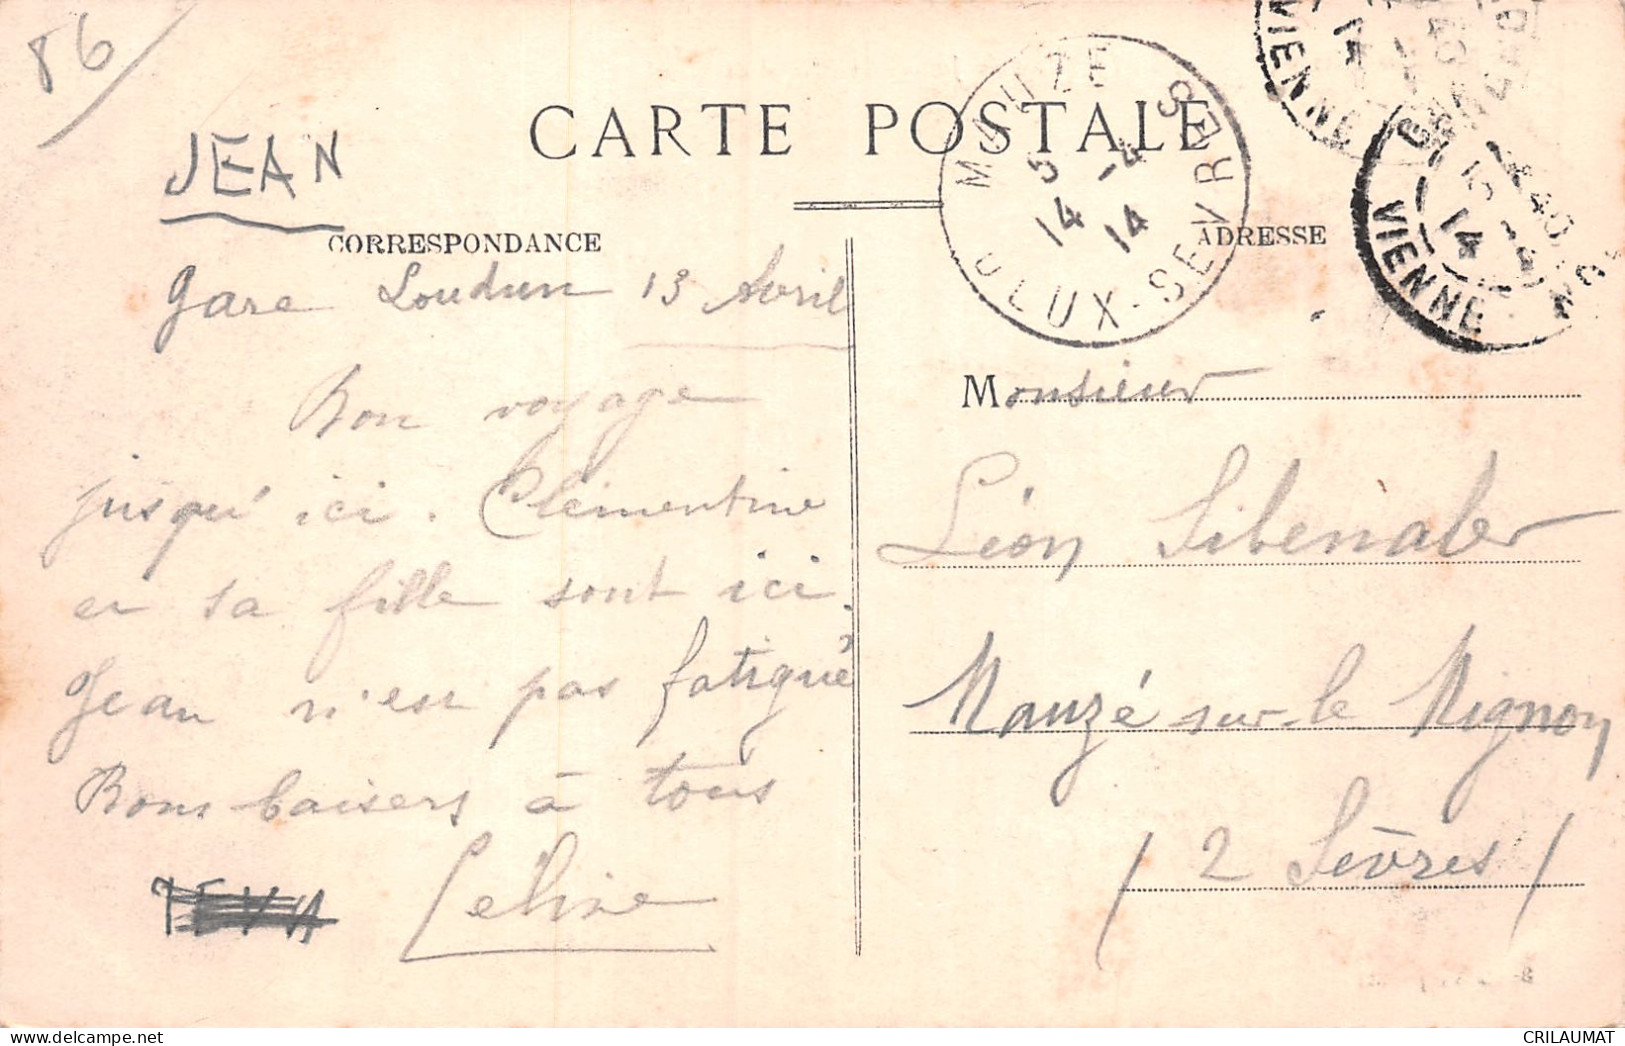 86
JEAN
CARTE POSTALE
CORRESPONDANCE
ADRESSE
MAUZE
5
14 -4
14
DEUX-SEVRES
VIENNE
VIENNE
Gare Loudun 13 Avril
Bon voyage
jusqu'ici. Clémentine
et sa fille sont ici.
Jean n'est pas fatigué
Bons baisers à tous
Celine
Monsieur
Léon Sibenaler
Mauzé sur-le Mignon
(2 Sèvres)
CRILAUMAT